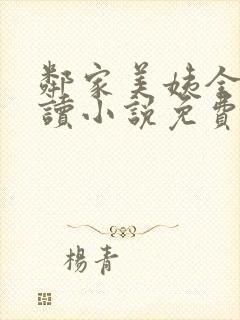 鄰家美姨全
讀小說免費
楊青